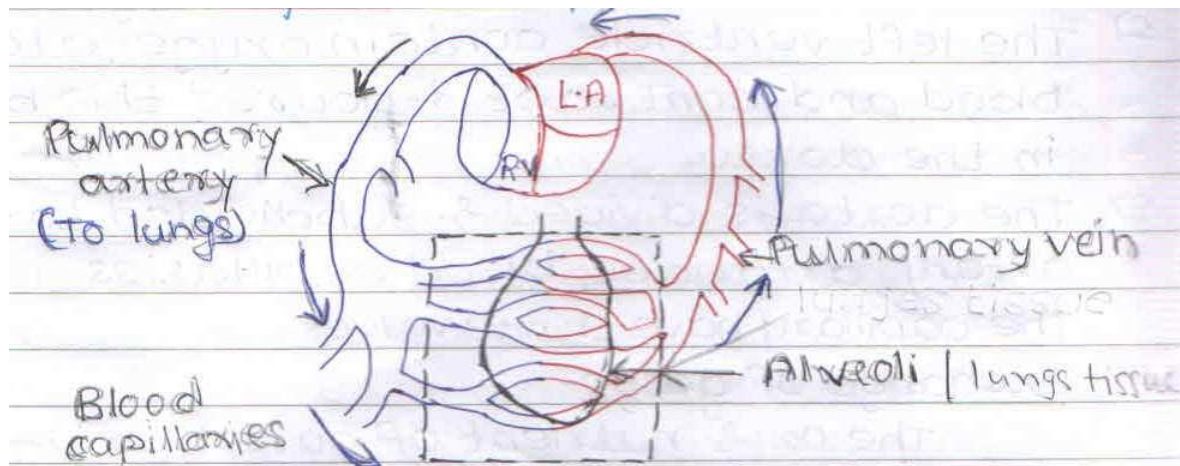 L.A
RV
Pulmonary
artery
(To lungs)
Pulmonary vein
Alveoli / lungs tissue
Blood
capillaries